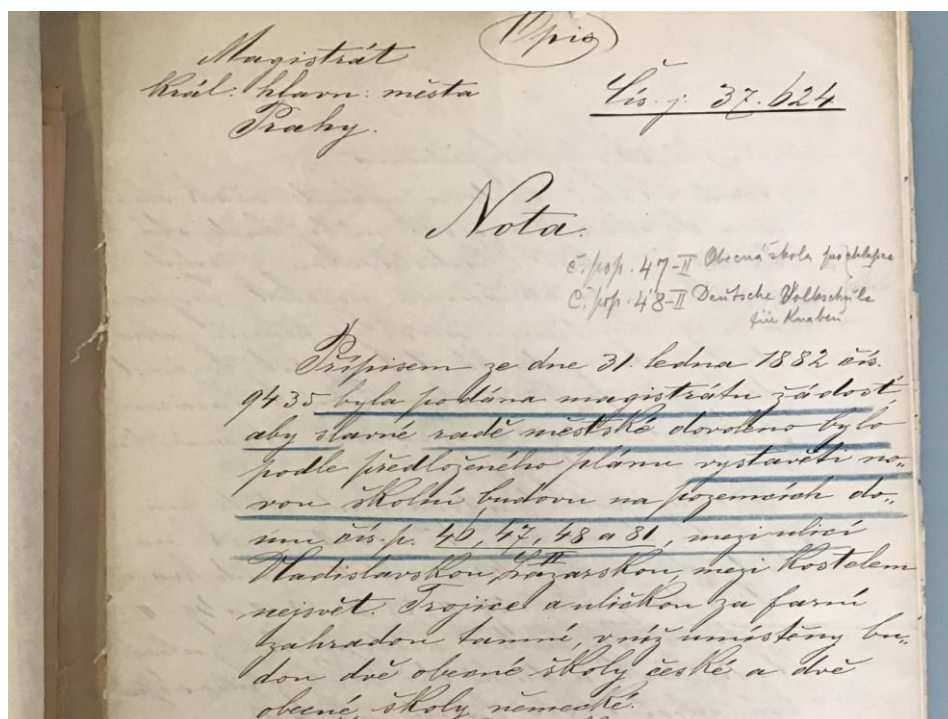 Opis
Magistrát
král. hlavn: města
Prahy.
Čís. j: 37.624
Nota.
č. pop. 47-II Obecná škola pro chlapce
Č. pop. 48-II Deutsche Volksschule
für Knaben
Přípisem ze dne 31. ledna 1882 čís.
9435 byla podána magistrátu žádost
aby slavné radě městské dovoleno bylo
podle předloženého plánu vystavěti no„
vou školní budovu na pozemcích do„
mu čís. p. 46, 47, 48 a 81, mezi ulicí
II
Vladislavskou, Lazarskou, mezi kostelem
nejsvět. Trojice a uličkou za farní
zahradou tamní, v níž umístěny bu„
dou dvě obecné školy české a dvě
obecné školy německé.